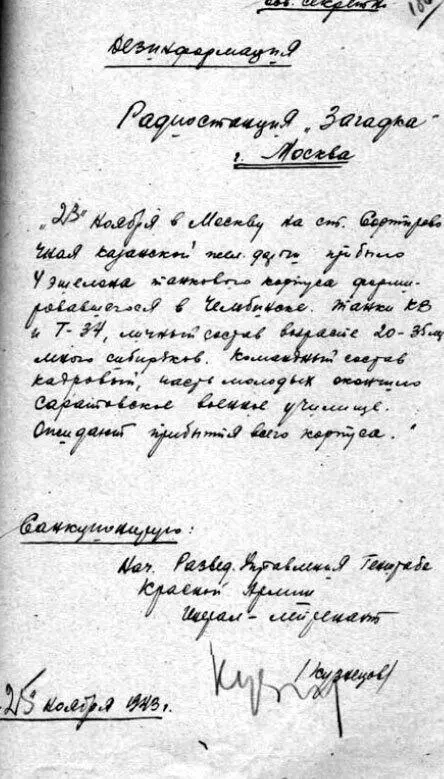 Сов. секретно
186
Дезинформация
Радиостанция „Загадка"
г. Москва
„23" ноября в Москву на ст. Сортирово
чная казанской жел. дороги прибыло
4 эшелона танкового корпуса форми-
ровавшегося в Челябинске. Танки КВ
и Т-34, личный состав возрасте 20-35 лет
много сибиряков. Командный состав
кадровый, часть молодых окончило
Саратовское военное училище.
Ожидают прибытия всего корпуса."
Санкционирую:
Нач. Развед. Управления Генштаба
Красной Армии
Генерал-лейтенант
/Кузнецов/
ноября 1943 г.